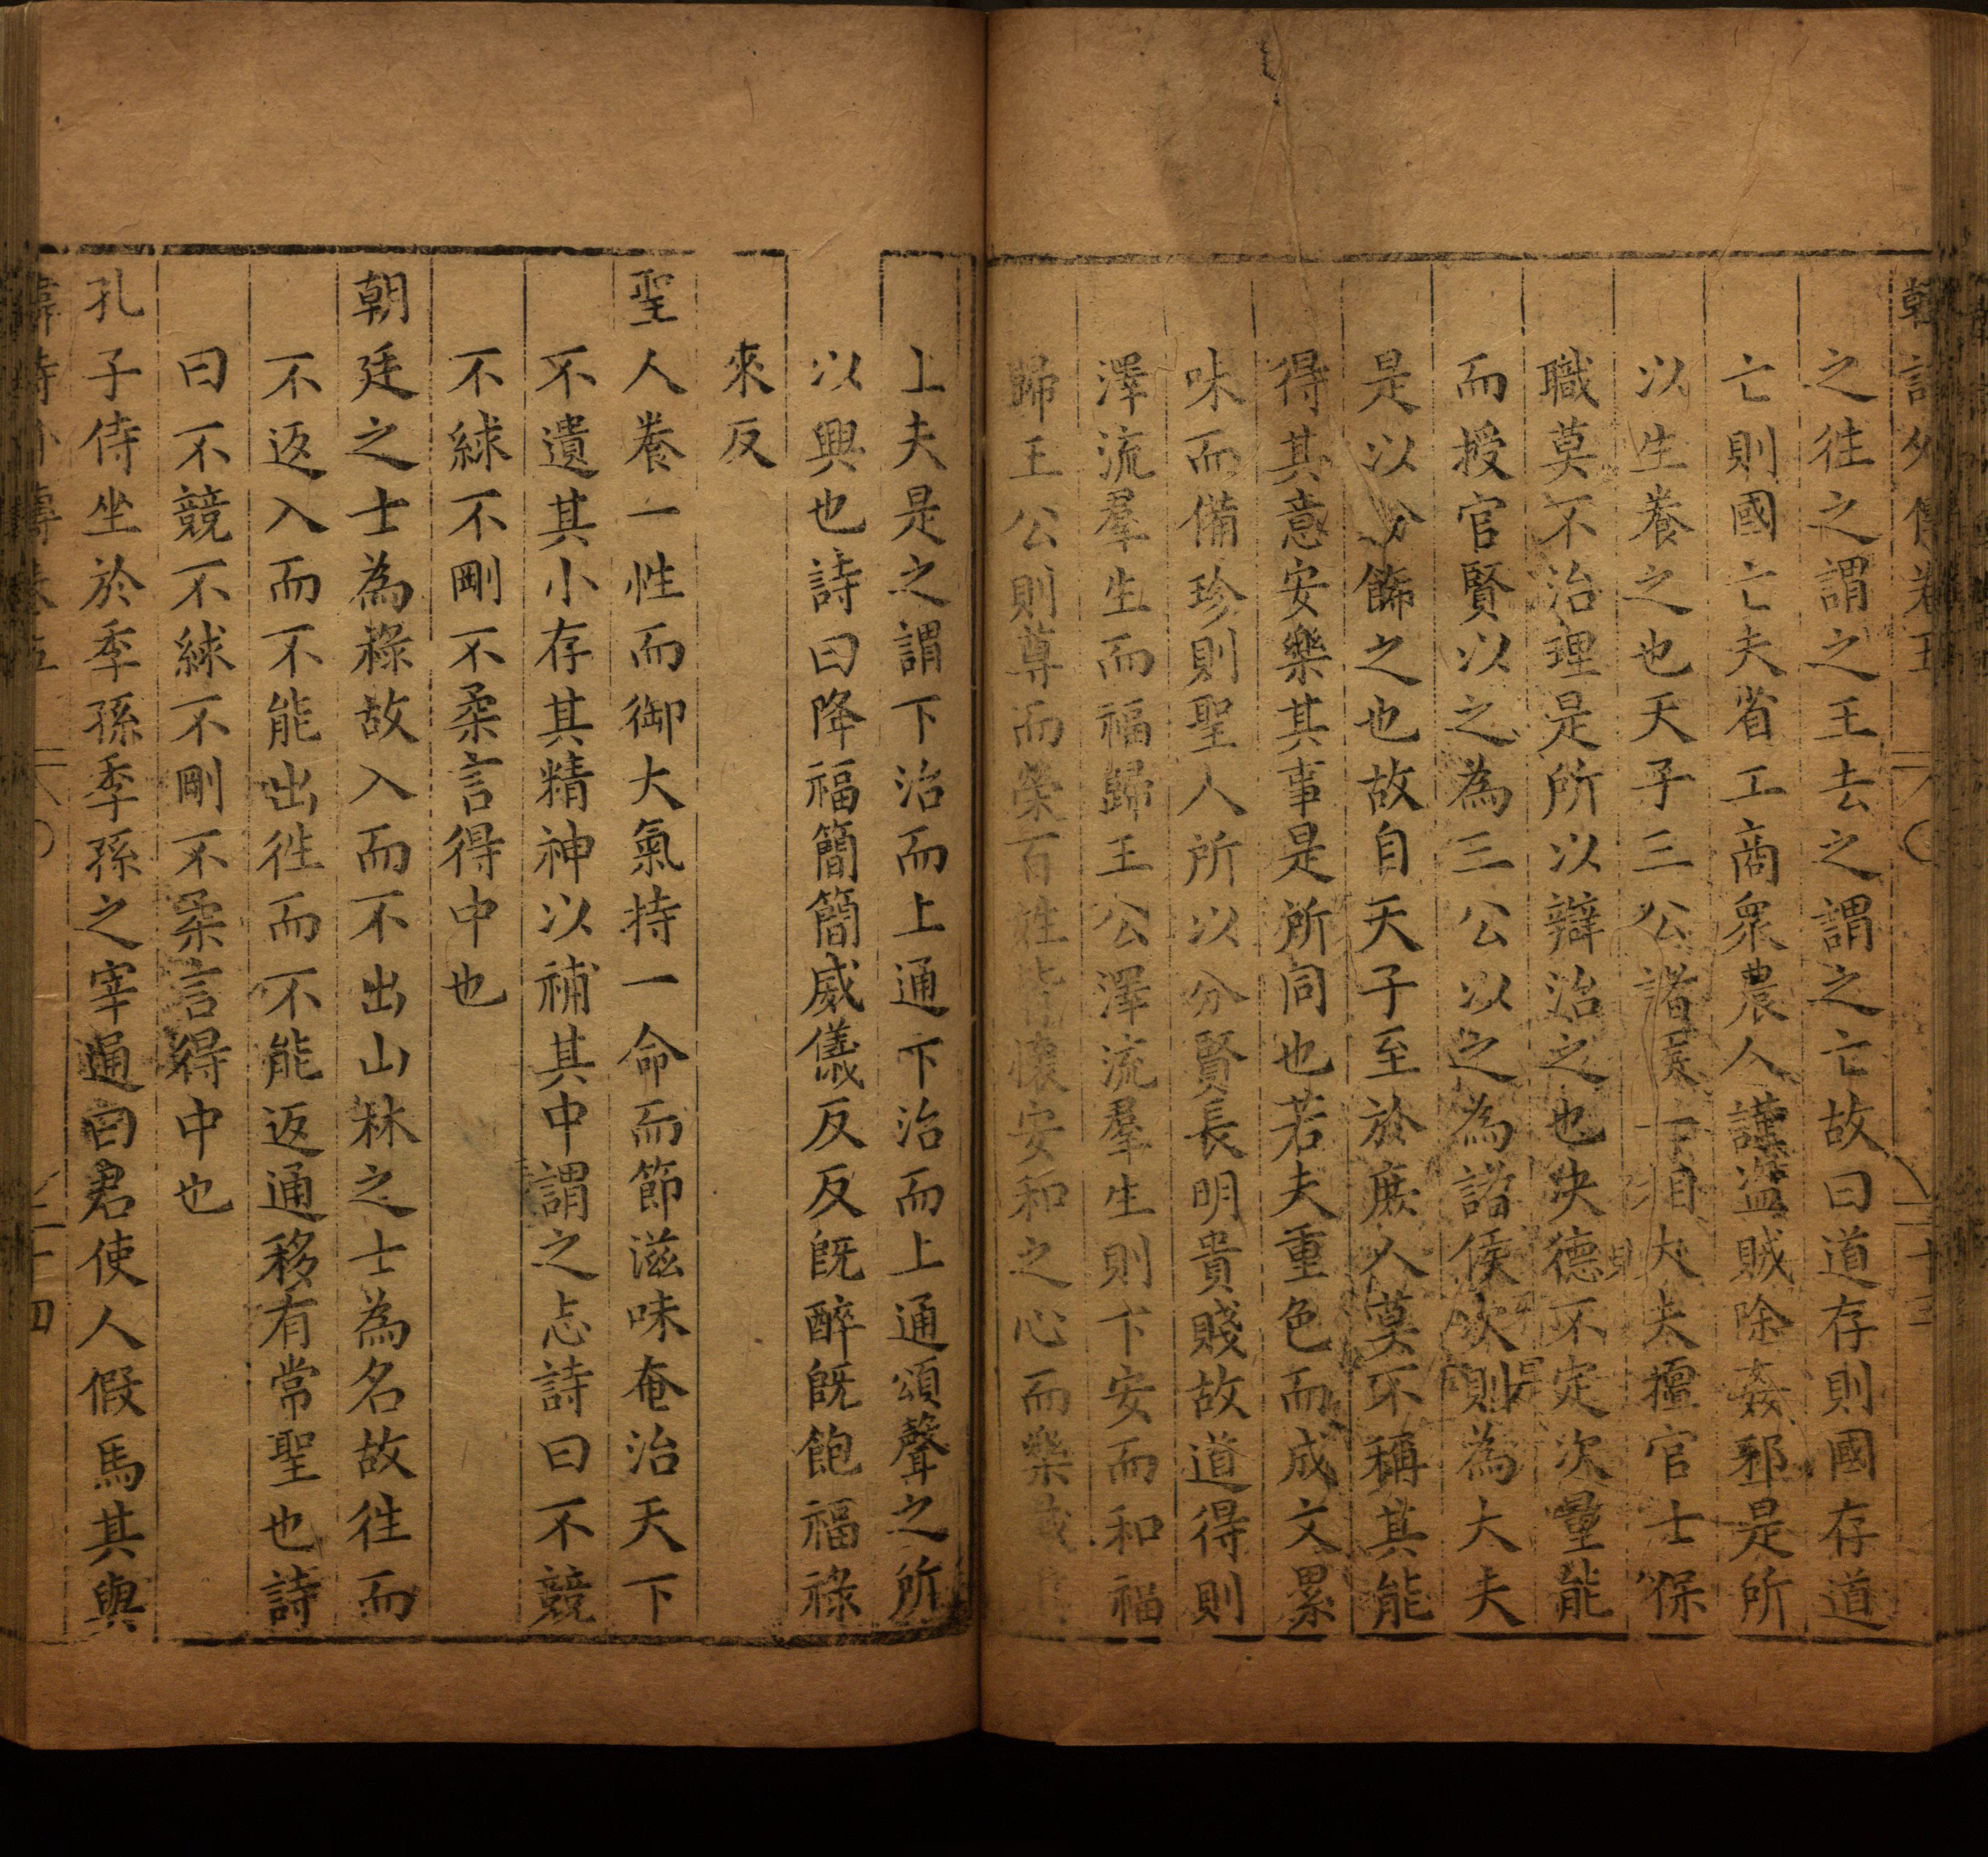 之往之謂之王去之謂之亡故曰道存則國存道
亡則國亡夫省工商衆農人謹盜賊除姦邪是所
以生養之也天子三公諸侯一相大夫擅官士保
職莫不治理是所以辯治之也决德不定次量能
而授官賢以之為三公以之為諸侯次則為大夫
是以分飾之也故自天子至於庶人莫不稱其能
得其意安樂其事是所同也若夫重色而成文累
味而備珍則聖人所以分賢長明貴賤故道得則
澤流羣生而福歸王公澤流羣生則下安而和福
歸王公則尊而榮百姓皆懷安和之心而樂戴其
上夫是之謂下治而上通下治而上通頌聲之所
以興也詩曰降福簡簡威儀反反既醉既飽福祿
來反
聖人養一性而御大氣持一命而節滋味奄治天下
不遺其小存其精神以補其中謂之志詩曰不競
不絿不剛不柔言得中也
朝廷之士為祿故入而不出山林之士為名故往而
不返入而不能出往而不能返通移有常聖也詩
曰不競不絿不剛不柔言得中也
孔子侍坐於季孫季孫之宰通曰君使人假馬其與